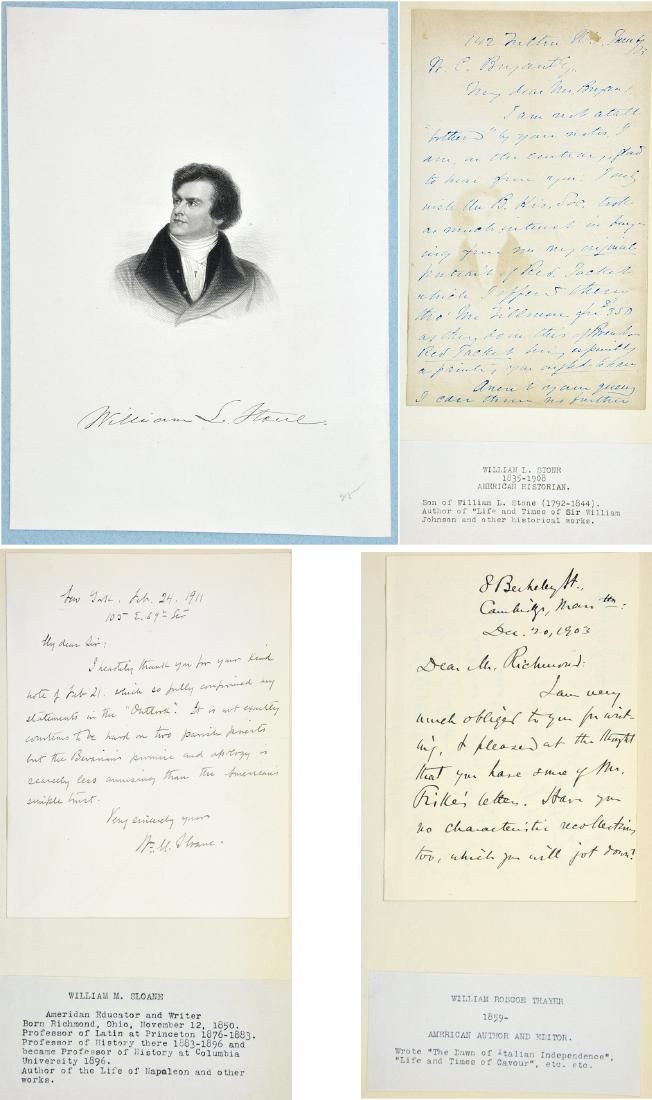 William L. Stone.
142 Fulton St.,
W. C. Bryant Esq.
My dear Mr Bryant,
I am not at all
"bothered" by your notes, I
am, on the contrary, glad
to hear from you. I only
wish the B. His. Soc. took
as much interest in buy-
ing from me my original
portrait of Red Jacket
which I offered them
thro' Mr Fillmore for $350
as they do in this of Brant.
Red Jacket being especially
a painting you ought to have
Anent your query
I can throw no further
WILLIAM L. STONE
1835-1908
AMERICAN HISTORIAN.
Son of William L. Stone (1792-1844).
Author of "Life and Times of Sir William
Johnson and other historical works.
New York. Feb. 24. 1911
105 E. 69th Str
My dear Sir:
I heartily thank you for your kind
note of Feb 21. which so fully confirmed my
statements in the "Outlook". It is not exactly
courteous to be hard on two parish priests
but the Bavarian's promise and apology is
scarcely less amusing than the American's
simple trust.
Very sincerely yours
Wm. M. Sloane.
WILLIAM M. SLOANE
Ameridan Educator and Writer
Born Richmond, Ohio, November 12, 1850.
Professor of Latin at Princeton 1876-1883.
Professor of History there 1883-1896 and
became Professor of History at Columbia
University 1896.
Author of the Life of Napaleon and other
works.
8 Berkeley St.,
Cambridge, Mass:
Dec. 20, 1903
Dear Mr. Richmond:
I am very
much obliged to you for writ-
ing, & pleased at the thought
that you have some of Mr.
Fiske's letters. Have you
no characteristic recollections
too, which you will jot down?
WILLIAM ROSCOE THAYER
1859-
AMERICAN AUTHOR AND EDITOR.
Wrote "The Dawn of Italian Independence",
"Life and Times of Cavour", etc. etc.